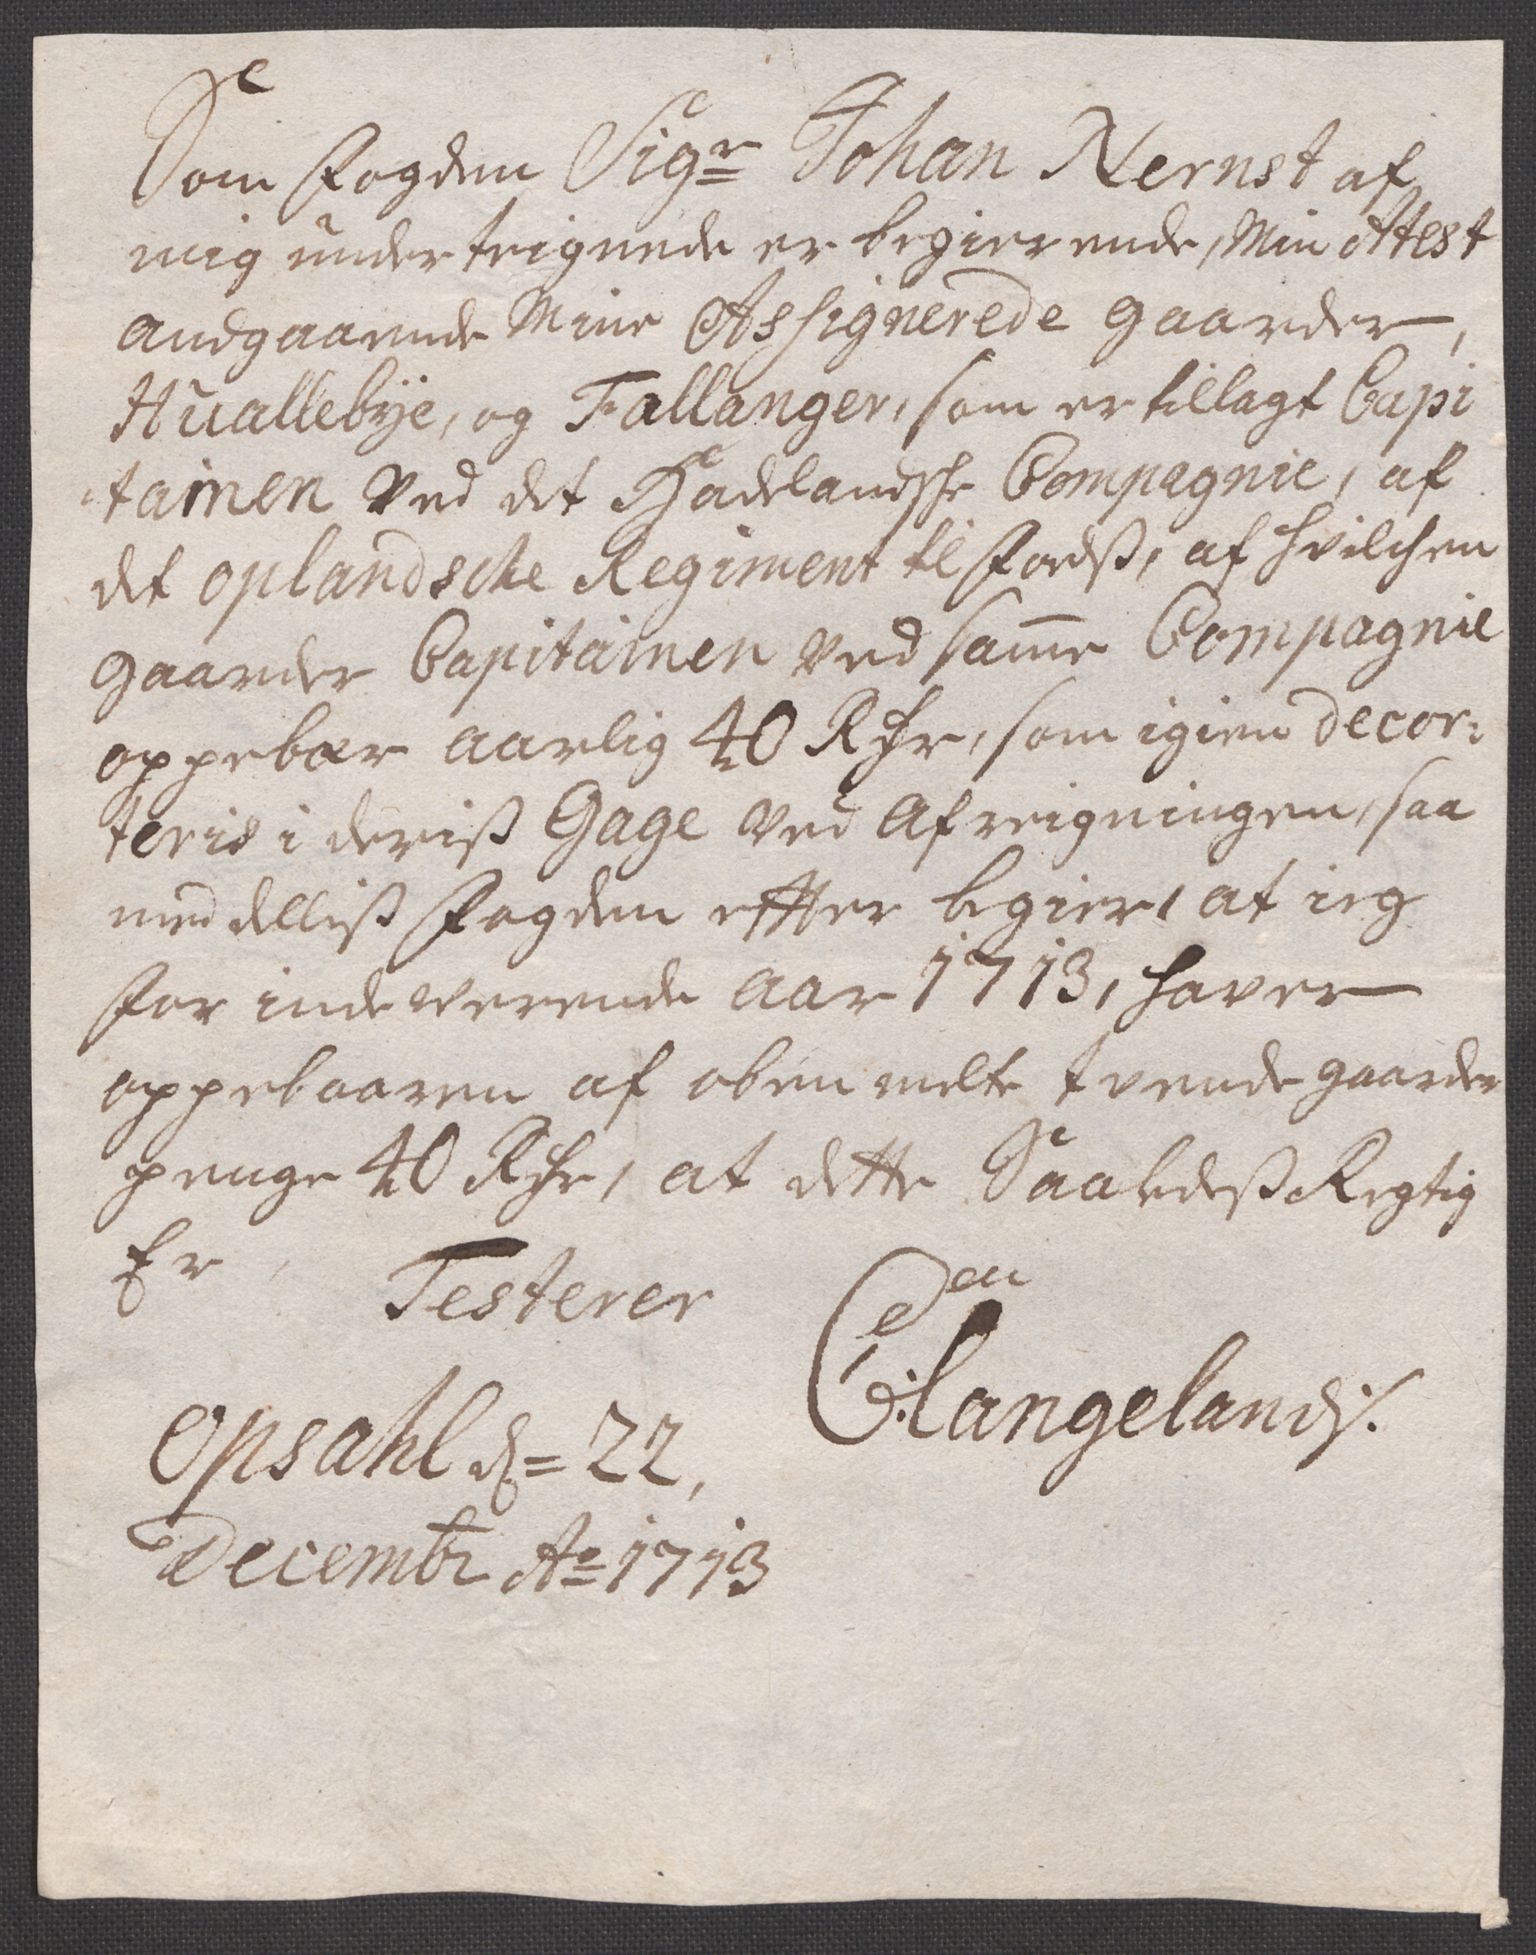 Som Fogden Sigr Johan Nernst af
mig under teignede er begierende, Min Attest
andgaaende Mine Assignerede gaarder,
Huallebÿe, og Fallanger, som er tillagt Capi
tainen Ved det Hadelandsche Compagnie, af
det oplandsche Regiment til Foedß, af hvilchen
gaarder Capitainen Ved same Compagnie
oppebær aarlig 40 Rdr, som igien decor:
teris i deriß Gage Ved Afreigningen, saa
meddelliß Fogden effter begier, at ieg
for indeverende Aar 1713, haver
oppebaaren af oben melte tvende gaarder
penge 40 Rdr, at dette Saaledeß Regtig
Er, Testerer
CLangeland
Opsahl d= 22,
Decembr Ao 1713